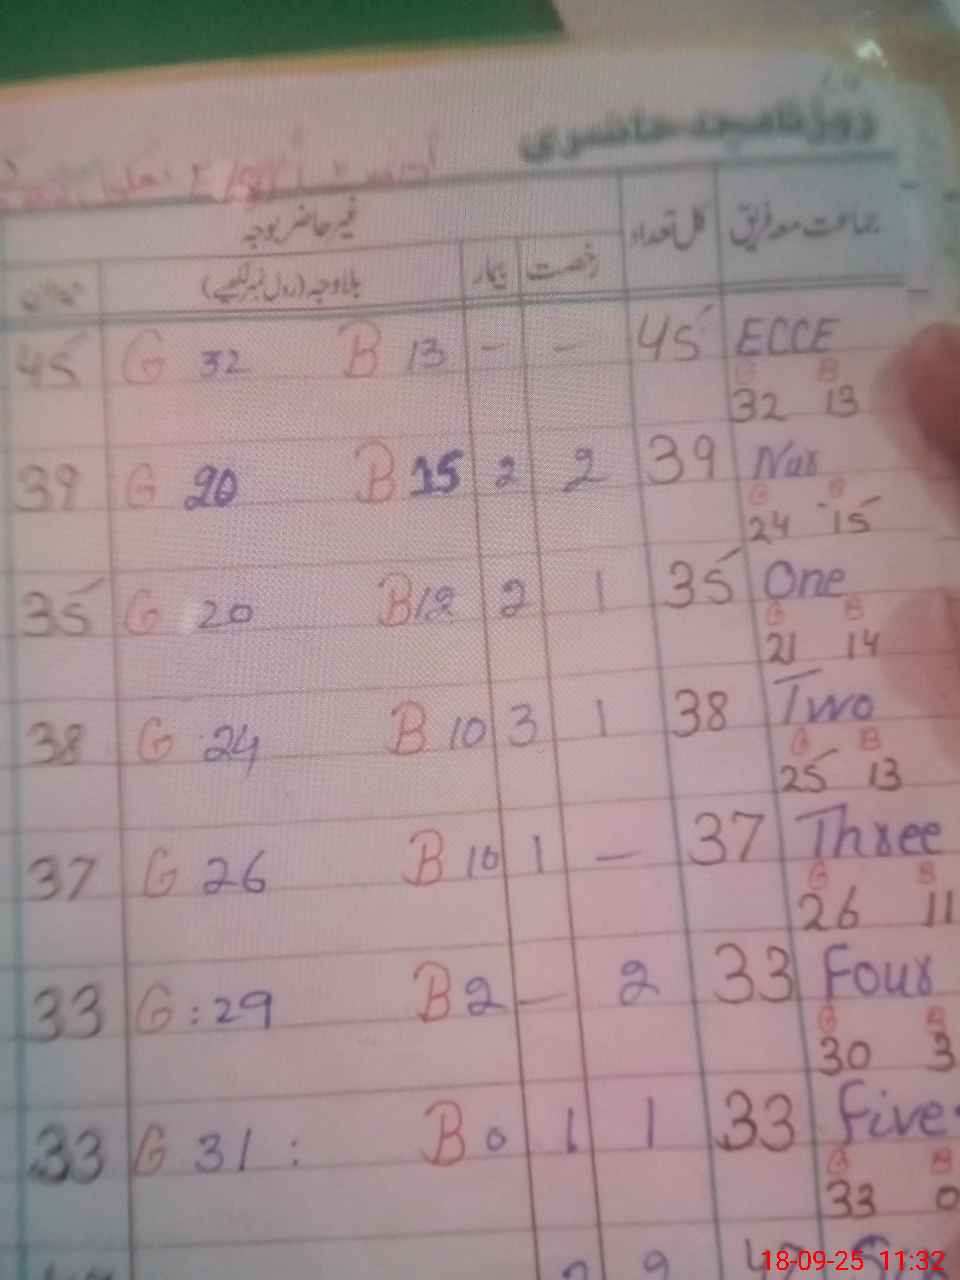 روزنامچہ حاضری
جماعت معہ فریق کل تعداد غیر حاضر بوجہ
رخصت بیمار بلاوجہ (رول نمبر لکھیے) میزان
ECCE 45 - - B 13 G 32 45
G 32 B 13
Nur 39 2 2 B 15 G 20 39
G 24 B 15
One 35 1 2 B 12 G 20 35
G 21 B 14
Two 38 1 3 B 10 G 24 38
G 25 B 13
Three 37 - 1 B 10 G 26 37
G 26 B 11
Four 33 2 - B 2 G : 29 33
G 30 B 3
Five 33 1 1 B 0 G 31 : 33
G 33 B 0
18-09-25 11:32